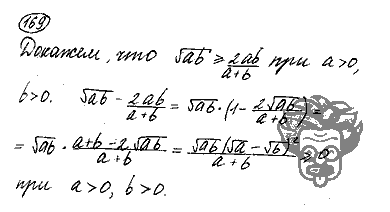 169
Докажем, что √ab ≥ 2ab/(a+b) при a>0,
b>0. √ab - 2ab/(a+b) = √ab · (1 - 2√ab/(a+b)) =
= √ab · (a+b-2√ab)/(a+b) = √ab(√a-√b)²/(a+b) ≥ 0
при a>0, b>0.